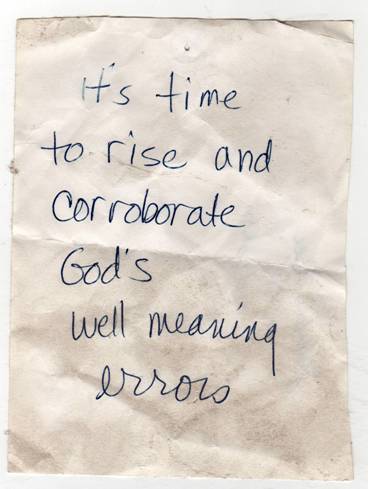 it's time
to rise and
corroborate
God's
well meaning
errors